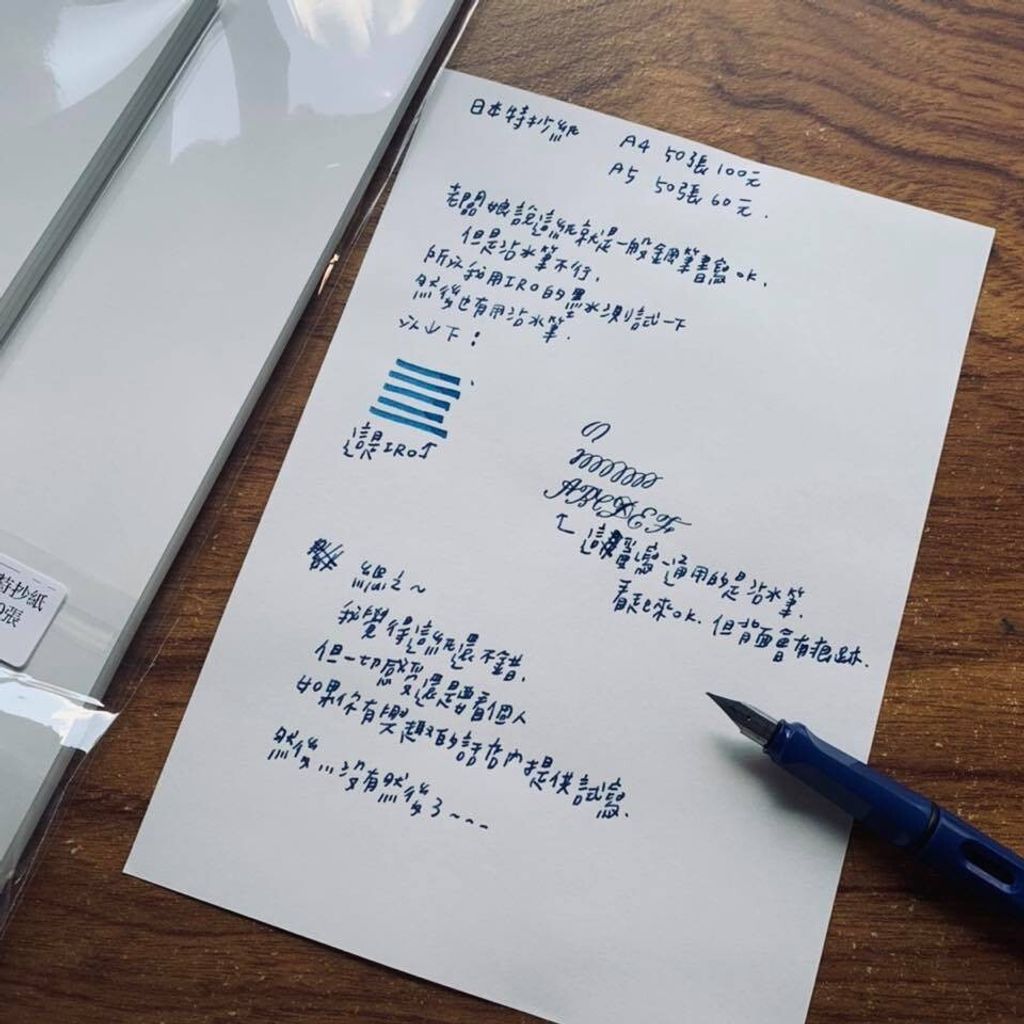 日本特抄紙
A4 50張 100元
A5 50張 60元.
老闆娘說這紙就是一般鋼筆書寫OK.
但是沾水筆不行,
所以我用IRO的墨水測試一下
然後也有用沾水筆.
以下:
這是IRO↑
ABCDEF
↖ 這邊 適用的是沾水筆.
看起來OK. 但背面會有痕跡.
總之~
我覺得這紙還不錯,
但一切感覺還是要看個人
如果你有興趣的話店內提供試寫.
然後...沒有然後了~~~
特抄紙
張